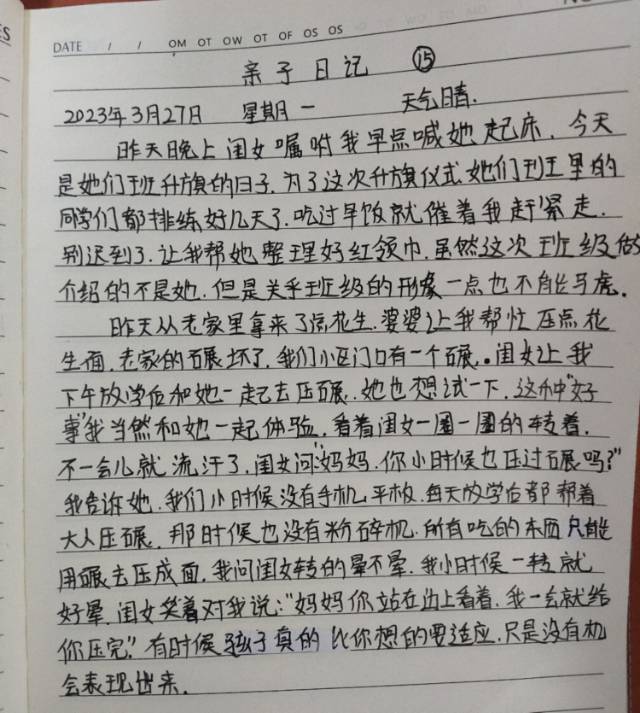 DATE / / OM OT OW OT OF OS OS
亲子日记 ⑮
2023年3月27日 星期一 天气晴.
昨天晚上闺女嘱咐我早点喊她起床,今天
是她们班升旗的日子.为了这次升旗仪式她们班里的
同学们都排练好几天了.吃过早饭就催着我赶紧走.
别迟到了.让我帮她整理好红领巾.虽然这次班级做
介绍的不是她.但是关乎班级的形象一点也不能马虎.
昨天从老家里拿来了点花生.婆婆让我帮忙压点花
生面.老家的碾坏了.我们小区门口有一个碾。闺女让我
下午放学后和她一起去压碾.她也想试一下.这种"好
事"我当然和她一起体验.看着闺女一圈一圈的转着.
不一会儿就流汗了.闺女问:"妈妈.你小时候也压过碾吗?"
我告诉她.我们小时候没有手机.平板.每天放学后都帮着
大人压碾.那时候也没有粉碎机.所有吃的东西只能
用碾去压成面.我问闺女转的晕不晕.我小时候一转就
好晕.闺女笑着对我说:"妈妈你站在边上看着.我一会就给
你压完."有时候孩子真的比你想的要适应.只是没有机
会表现出来.